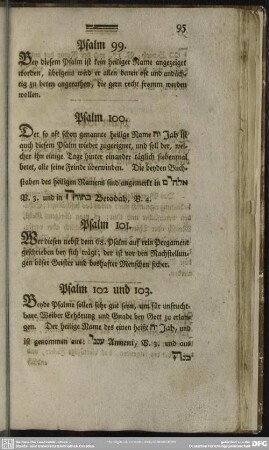 95
Psalm 99.
Bey diesem Psalm ist kein heiliger Name angezeiget
worden, übrigens wird er allen denen oft und andäch-
tig zu beten angerathen, die gern recht fromm werden
wollen.
Psalm 100.
Der so oft schon genannte heilige Name יה Jah ist
auch diesem Psalm wieder zugeeignet, und soll der, wel-
cher ihn einige Tage hinter einander täglich siebenmal
betet, alle seine Feinde überwinden. Die beyden Buch-
staben des heiligen Namens sind angemerkt in
V. 3. und in Berobah, V. 4.
Psalm 101.
Wer diesen nebst dem 68. Psalm auf rein Pergament
geschrieben bey sich trägt, der ist vor den Nachstellun-
gen böser Geister und boshafter Menschen sicher.
Psalm 102 und 103.
Beyde Psalme sollen sehr gut seyn, um für unfrucht-
bare Weiber Erhörung und Gnade bey Gott zu erlan-
gen. Der heilige Name des einen heißt יה Jah, und
ist genommen aus: ענני Anneni, V. 3. und aus